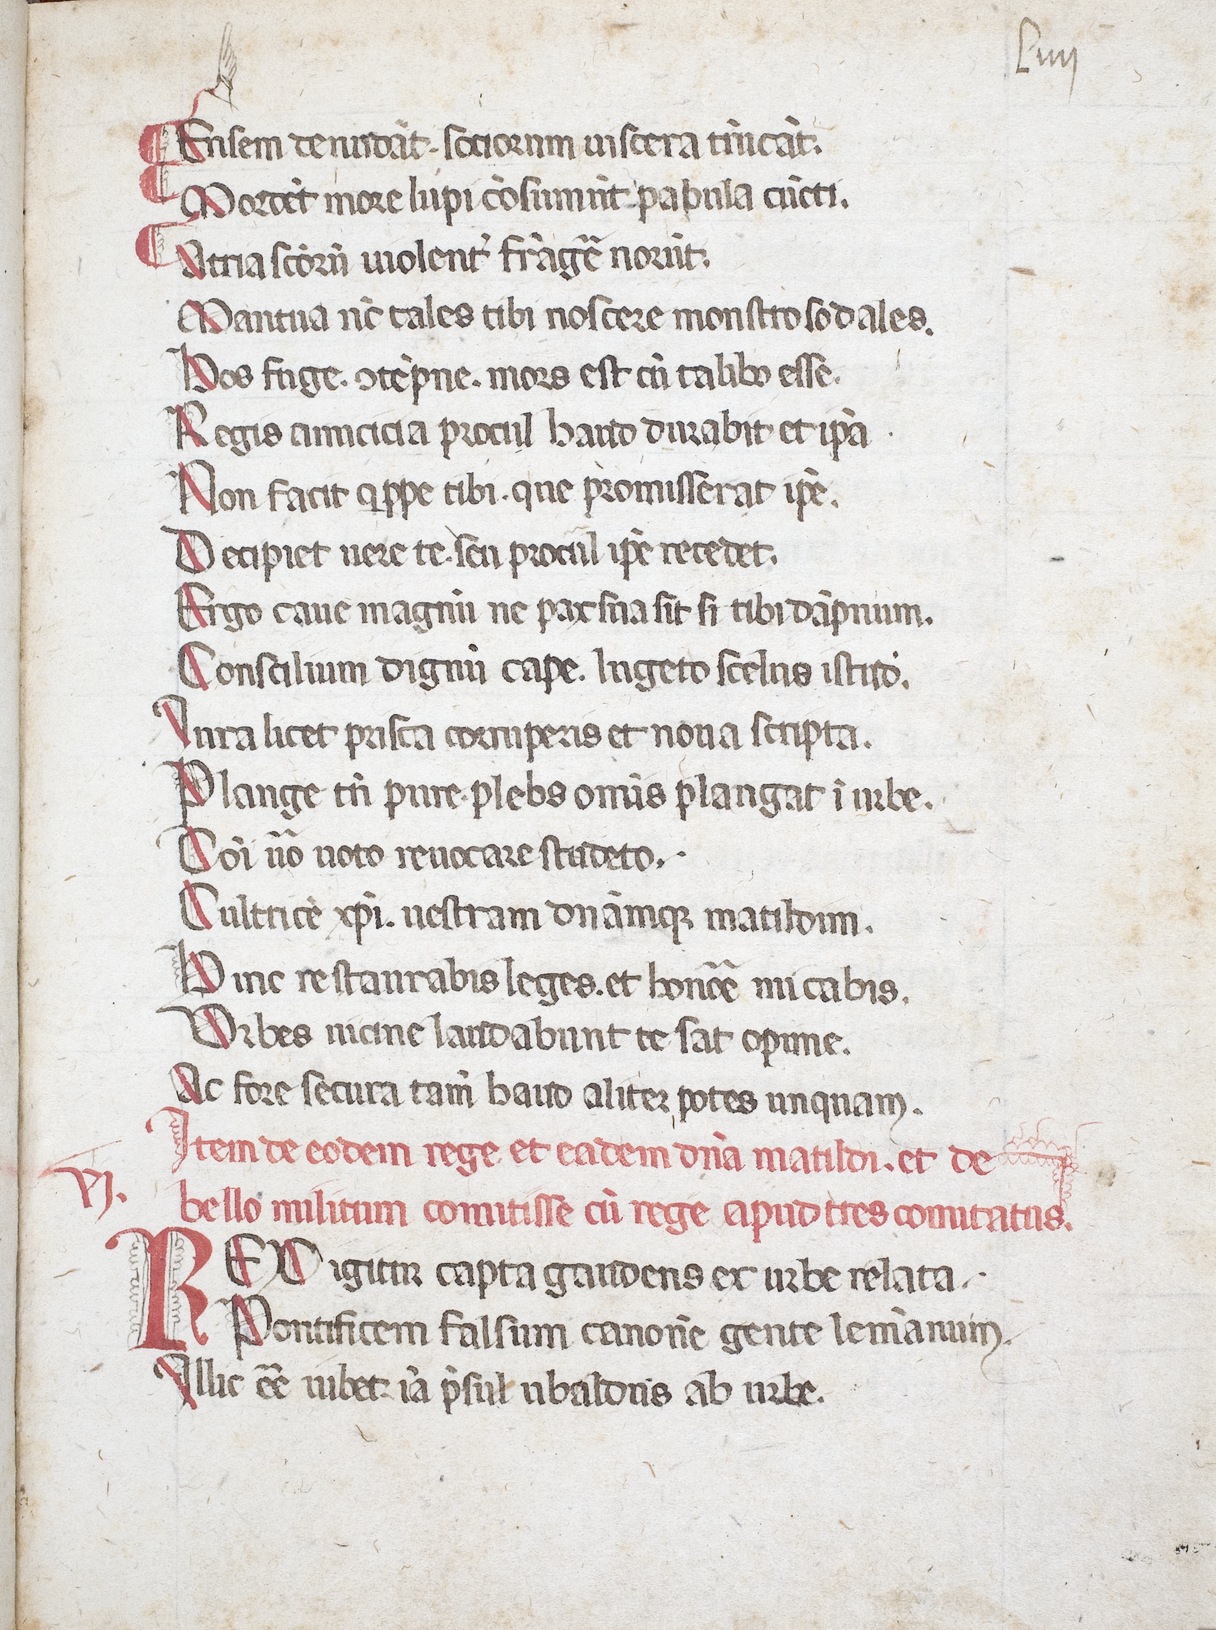 Lıııj
Ensem denudāt. sociorum uiscera trūcāt.
Mordēt more lupi cōsumūt pabula cūcti.
Atria scōrū uiolent᷑ frāgē norūt.
Mantua nūc tales tibi noscere monstro sodales.
Hos fuge. ↄtēpne. mors est cū talibꝯ esse.
Regis amicicia procul haud durabit et ip̄a
Non facit q̄ppe tibi. que promisserat ip̄e.
Decipiet uere te. seu procul ip̄e recedet.
Ergo caue magnū ne pax sua sit ſi tibi dāpnum.
Conscilium dignū cape. lugeto scelus istud.
Iura licet prisca corruperis et noua scripta.
Plange tn̄ pure. plebs omīs plangat ī urbe.
Coī uō uoto reuocare studeto.
Cultricē xp̄i. uestram dn̄āmqꝫ matildim.
Hinc restaurabis leges. et honōē micabis.
Vrbes uicine laudabunt te sat opime.
Ac fore secura tam̄ haud aliter potes unquam.
Item de eodem rege et eadem dn̄a matildi. et de
VI. bello militum comitisse cū rege apud tres comitatus.
REX igitur capta gaudens ex urbe relata.
Pontificem falsum canone gente lemānum.
Illic eē̄ iubet iā p̄sul ubaldus ab urbe.